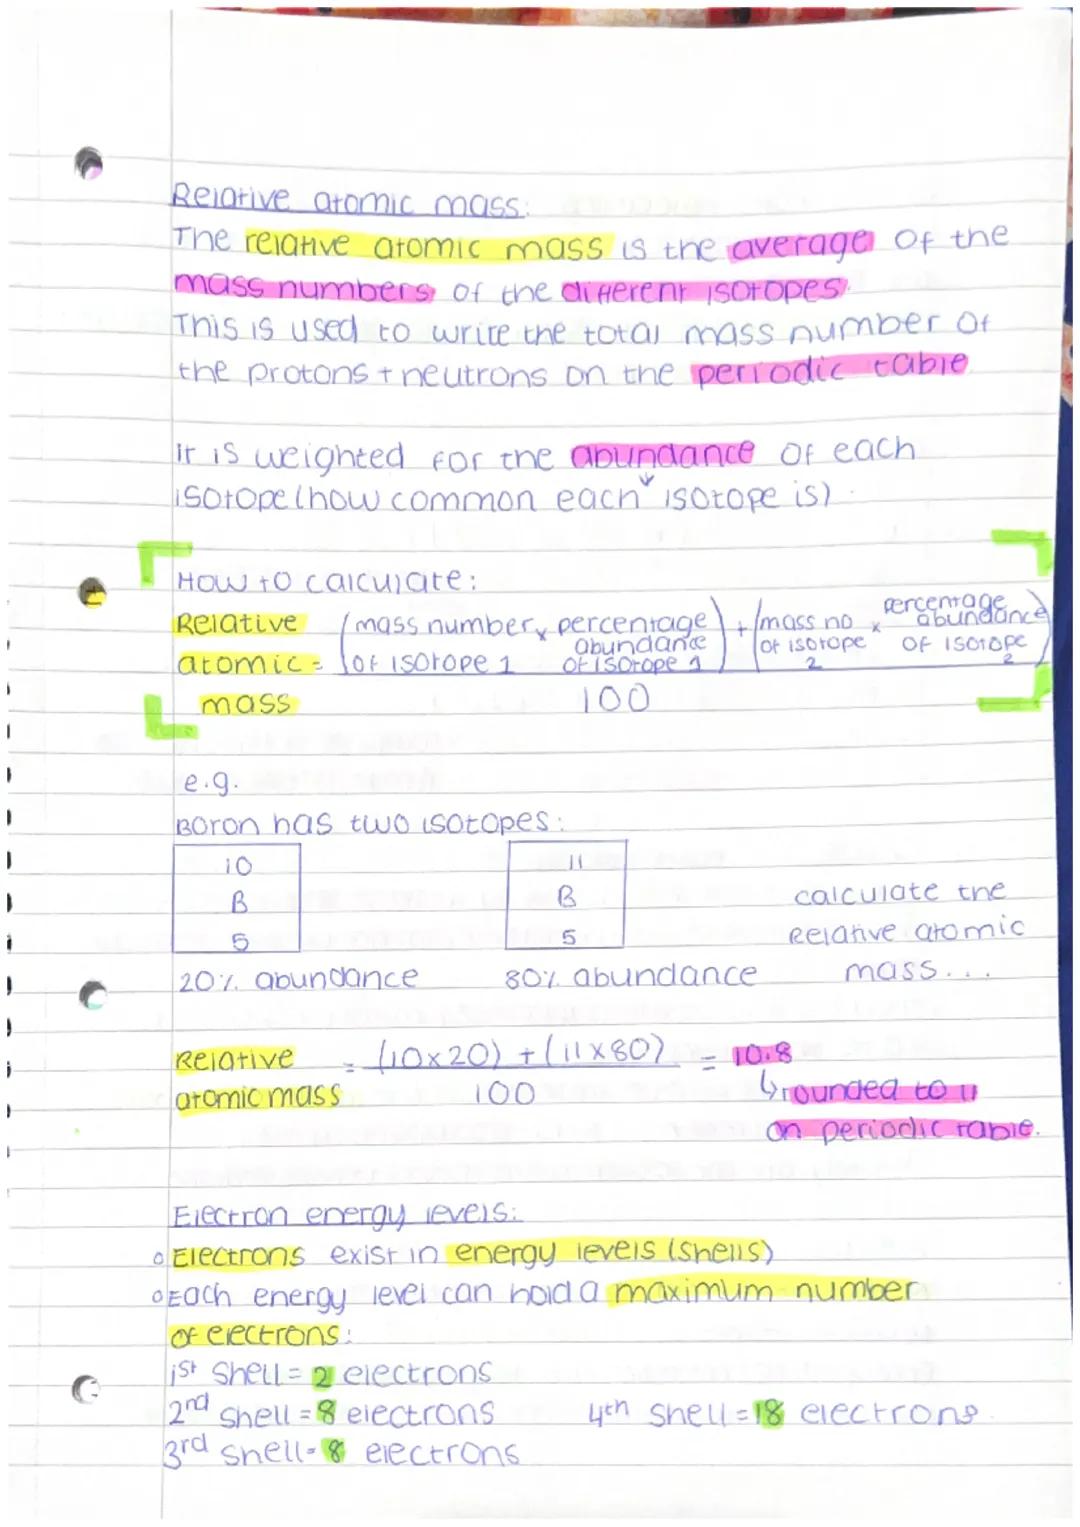 Relative atomic mass:
The relative atomic mass is the average of the
mass numbers of the different isotopes.
This is used to write the total mass number of
the protons + neutrons on the periodic table
It is weighted for the abundance of each
isotope (how common each isotope is).
How to calculate:
Relative atomic mass = (mass number of isotope 1 x percentage abundance of isotope 1) + (mass no of isotope 2 x percentage abundance of isotope 2)
100
e.g.
Boron has two isotopes:
10 11
B B calculate the
5 5 Relative atomic
20% abundance 80% abundance mass...
Relative atomic mass = (10x20) + (11x80) = 10.8
100 ↳rounded to 11
on periodic table.
Electron energy levels:
o Electrons exist in energy levels (shells)
o Each energy level can hold a maximum number
of electrons:
1st shell = 2 electrons
2nd shell = 8 electrons 4th shell = 18 electrons.
3rd shell = 8 electrons